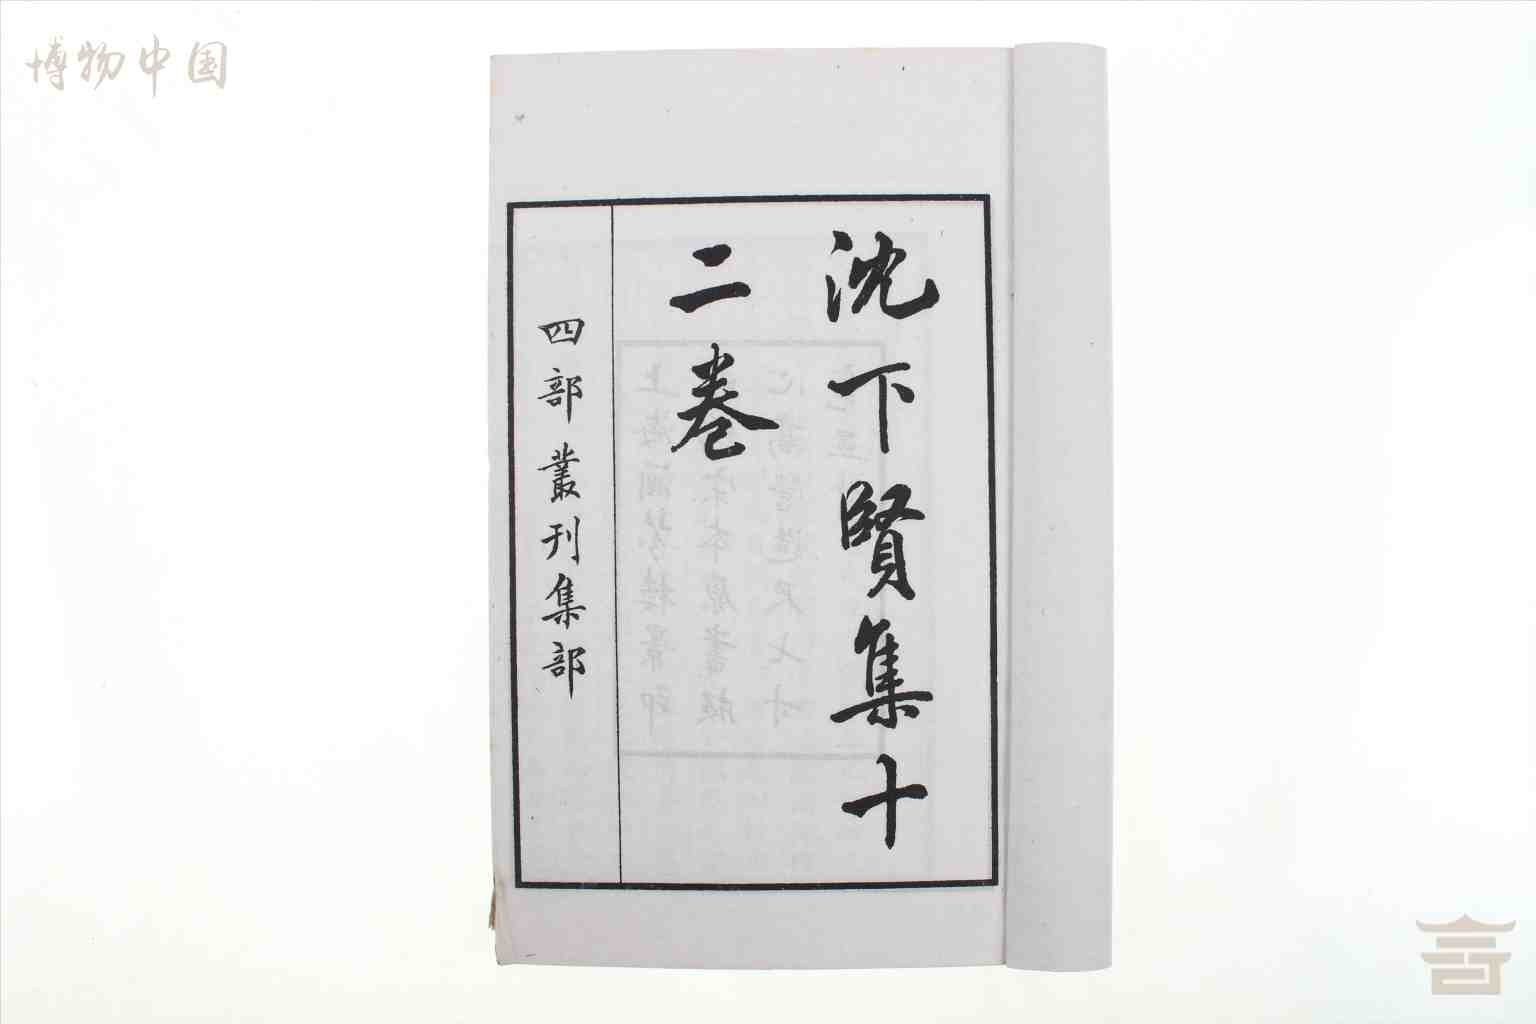 博物中国
沈下賢集十
二卷
四部叢刊集部